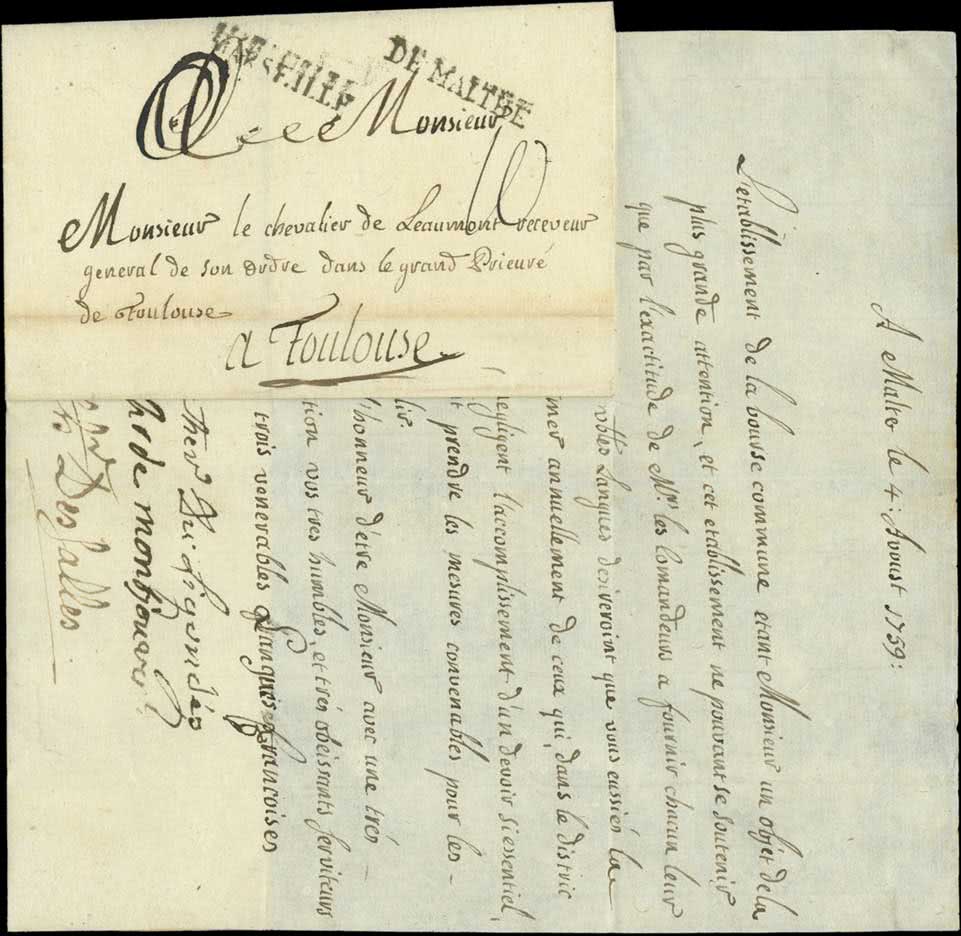 MARSEILLE
DE MALTHE
A Monsieur
10
Monsieur le chevalier de Leaumont receveur
general de son ordre dans le grand Prieuré
de Toulouse
a Toulouse
A Malte le 4: Avoust 1759:
L'etablissement de la bourse commune etant Monsieur un objet de la
plus grande attention, et cet etablissement ne pouvant se soutenir
que par l'exactitude de Mrs. les Comandeurs a fournir chacun leur
Langues desireroint que vous eussiés la
annuellement de ceux qui, dans le distric
negligent l'accomplissement d'un devoir si essentiel,
prendre les mesures convenables pour les
l'honneur d'etre Monsieur avec une trés
tion vos tres humbles, et trés obeissants serviteurs
trois venerables Langues francoises
de monjouan
Des Salles